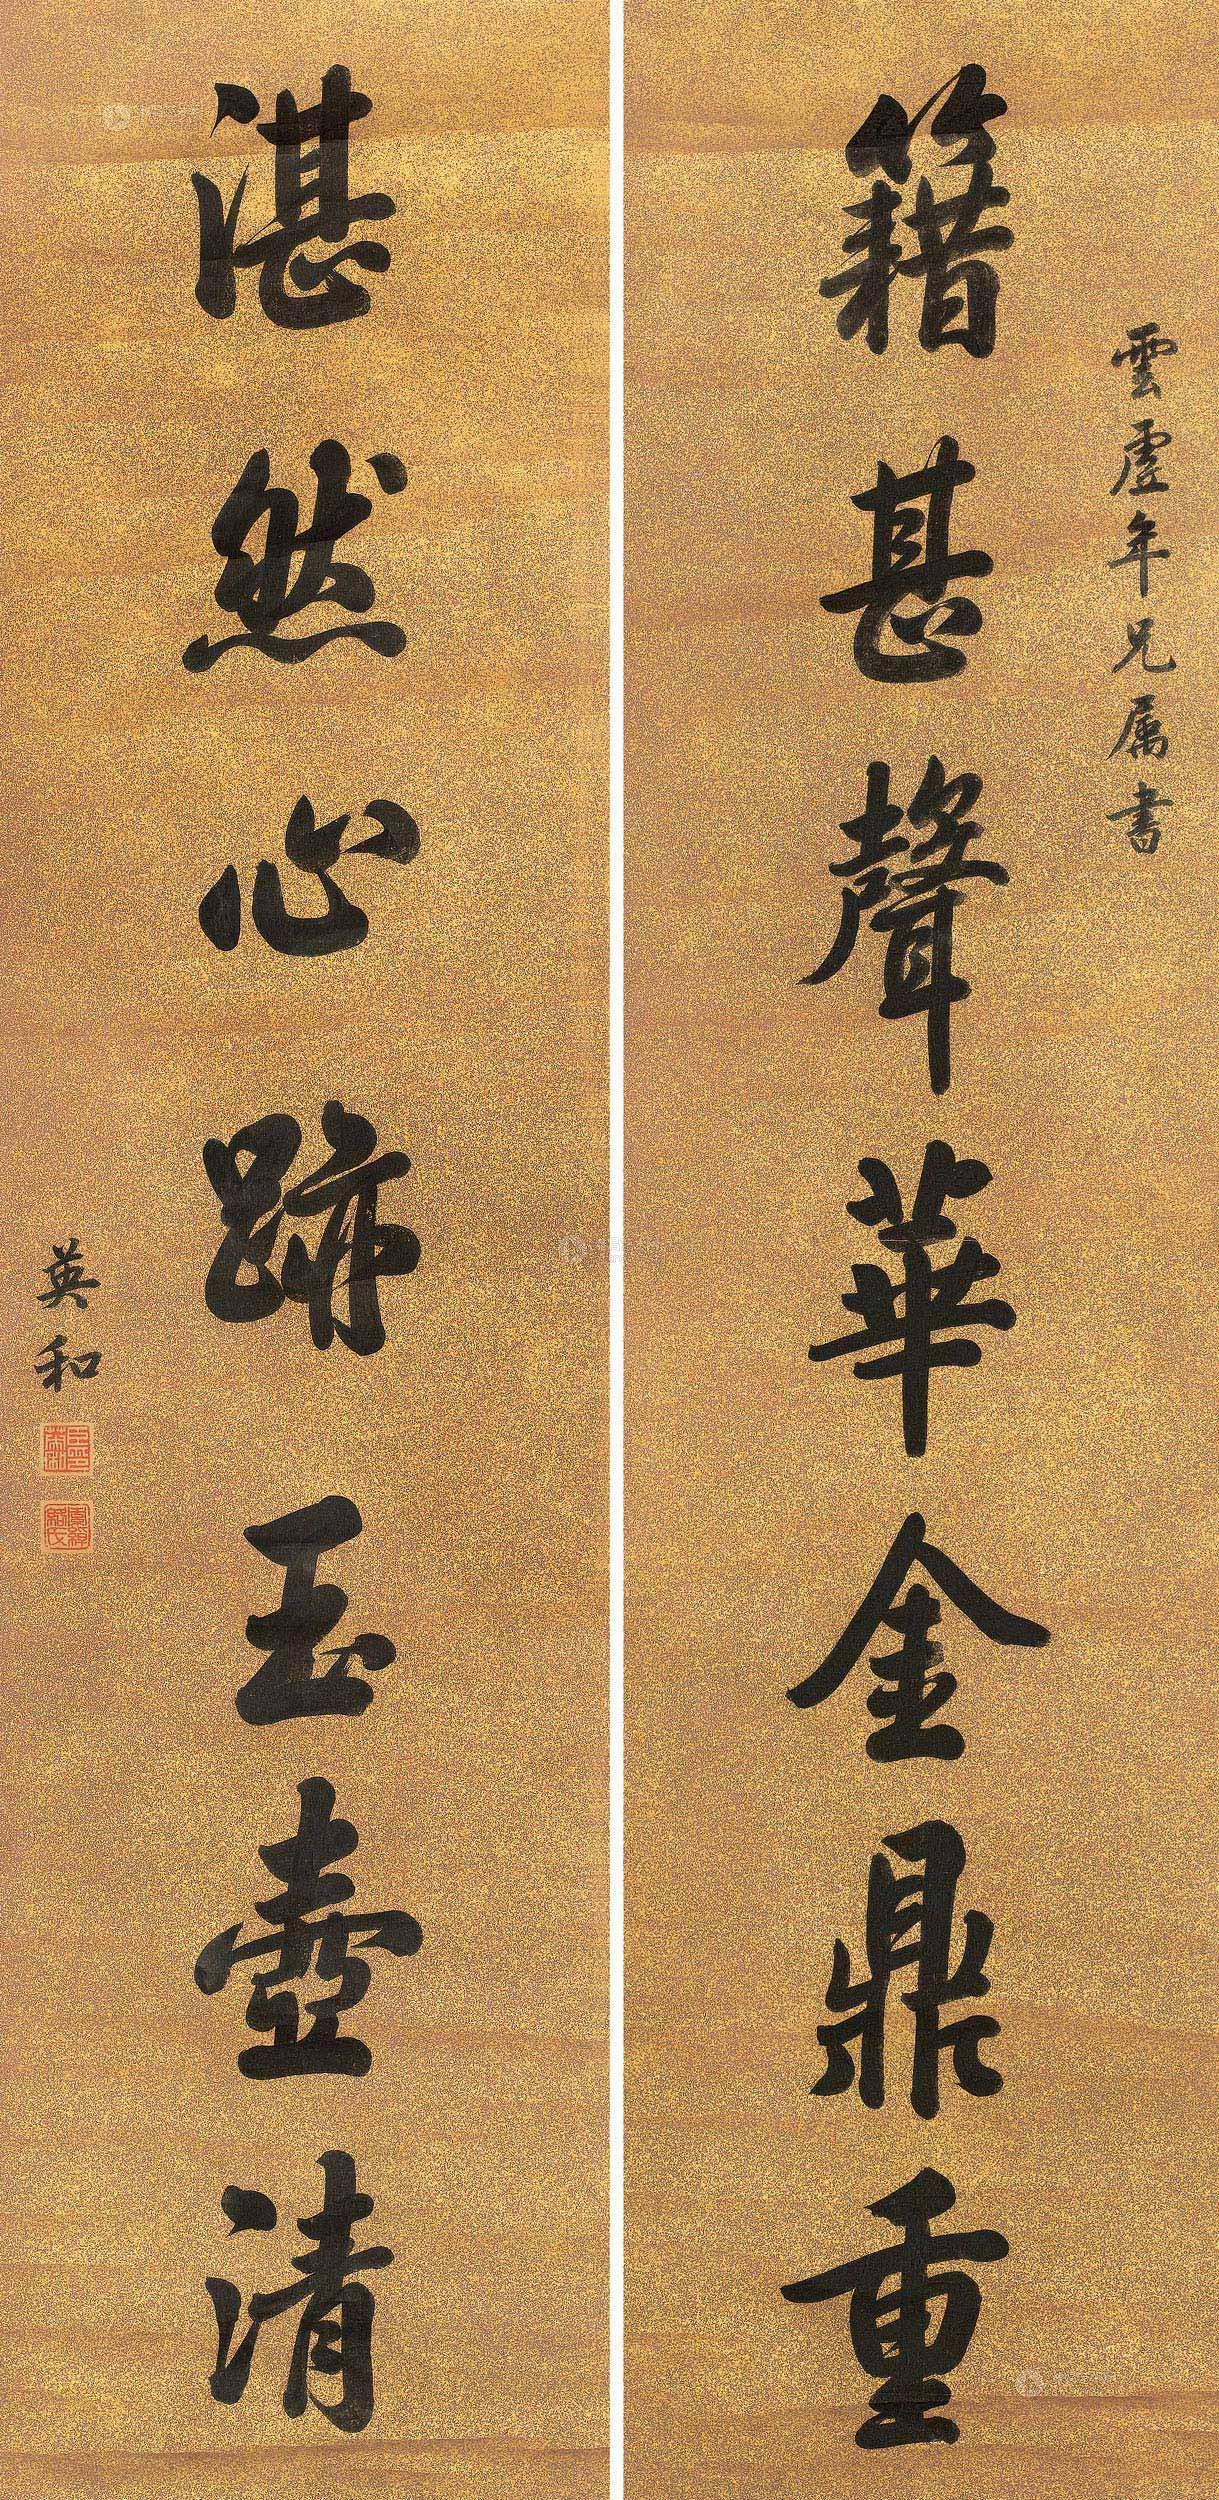 雲麾年兄属書
籍甚聲華金鼎重
湛然心跡玉壺清
英和